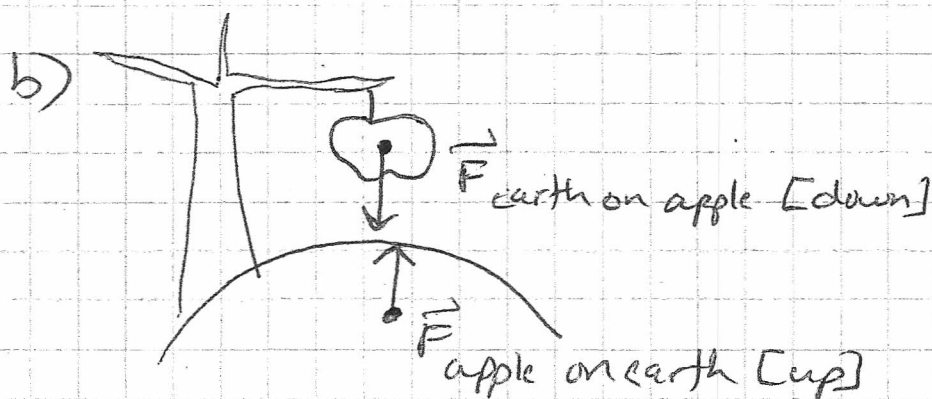 b)
F
earth on apple [down]
F
apple on earth [up]